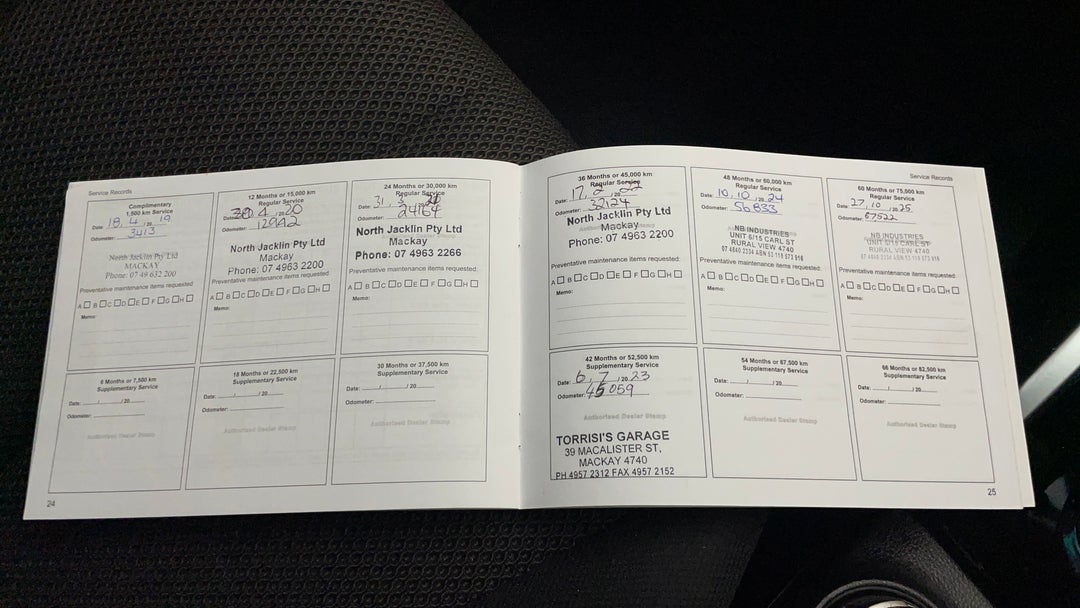 Service Records
Complimentary
1,500 km Service
Date: 18, 4, 20 19
Odometer: 3413
North Jacklin Pty Ltd
MACKAY
Phone: 07 49 632 200
Preventative maintenance items requested:
A B C D E F G H
Memo:
12 Months or 15,000 km
Regular Service
Date: 4, 20 20
Odometer: 12942
North Jacklin Pty Ltd
Mackay
Phone: 07 4963 2200
Preventative maintenance items requested:
A B C D E F G H
Memo:
24 Months or 30,000 km
Regular Service
Date: 31, 3, 20 21
Odometer: 24164
North Jacklin Pty Ltd
Mackay
Phone: 07 4963 2266
Preventative maintenance items requested:
A B C D E F G H
Memo:
6 Months or 7,500 km
Supplementary Service
Date: / / 20
Odometer:
Authorised Dealer Stamp
18 Months or 22,500 km
Supplementary Service
Date: / / 20
Odometer:
Authorised Dealer Stamp
30 Months or 37,500 km
Supplementary Service
Date: / / 20
Odometer:
Authorised Dealer Stamp
24
Service Records
36 Months or 45,000 km
Regular Service
Date: 17, 2, 20 22
Odometer: 32124
North Jacklin Pty Ltd
Mackay
Phone: 07 4963 2200
Preventative maintenance items requested:
A B C D E F G H
Memo:
48 Months or 60,000 km
Regular Service
Date: 10, 10, 20 24
Odometer: 56833
NB INDUSTRIES
UNIT 6/15 CARL ST
RURAL VIEW 4740
07 4840 2334 ABN 53 118 573 916
Preventative maintenance items requested:
A B C D E F G H
Memo:
60 Months or 75,000 km
Regular Service
Date: 27, 10, 20 25
Odometer: 67522
NB INDUSTRIES
UNIT 6/15 CARL ST
RURAL VIEW 4740
07 4840 2334 ABN 53 118 573 916
Preventative maintenance items requested:
A B C D E F G H
Memo:
42 Months or 52,500 km
Supplementary Service
Date: 6, 7, 20 23
Odometer: 45059
Authorised Dealer Stamp
TORRISI'S GARAGE
39 MACALISTER ST,
MACKAY 4740
PH 4957 2312 FAX 4957 2152
54 Months or 67,500 km
Supplementary Service
Date: / / 20
Odometer:
Authorised Dealer Stamp
66 Months or 82,500 km
Supplementary Service
Date: / / 20
Odometer:
Authorised Dealer Stamp
25